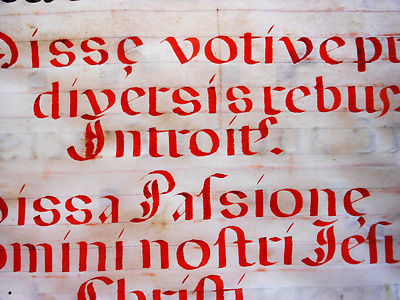 Missę votive pr
diversis rebus
Introitꝰ.
Missa Paſsionę
Domini noſtri Jeſu
Chriſti